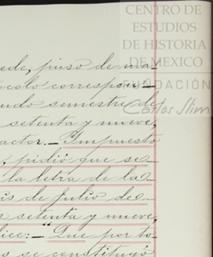 CENTRO DE
ESTUDIOS
DE HISTORIA
DE MEXICO
FUNDACIÓN
Carlos Slim
ede, puso de ma
ículo correspon-
undo semestre de
setenta y nueve,
actor.- Impuesto
pidió que se
la letra de la
is de Julio de
setenta y nueve,
dice:- "Que por to
se constituyó